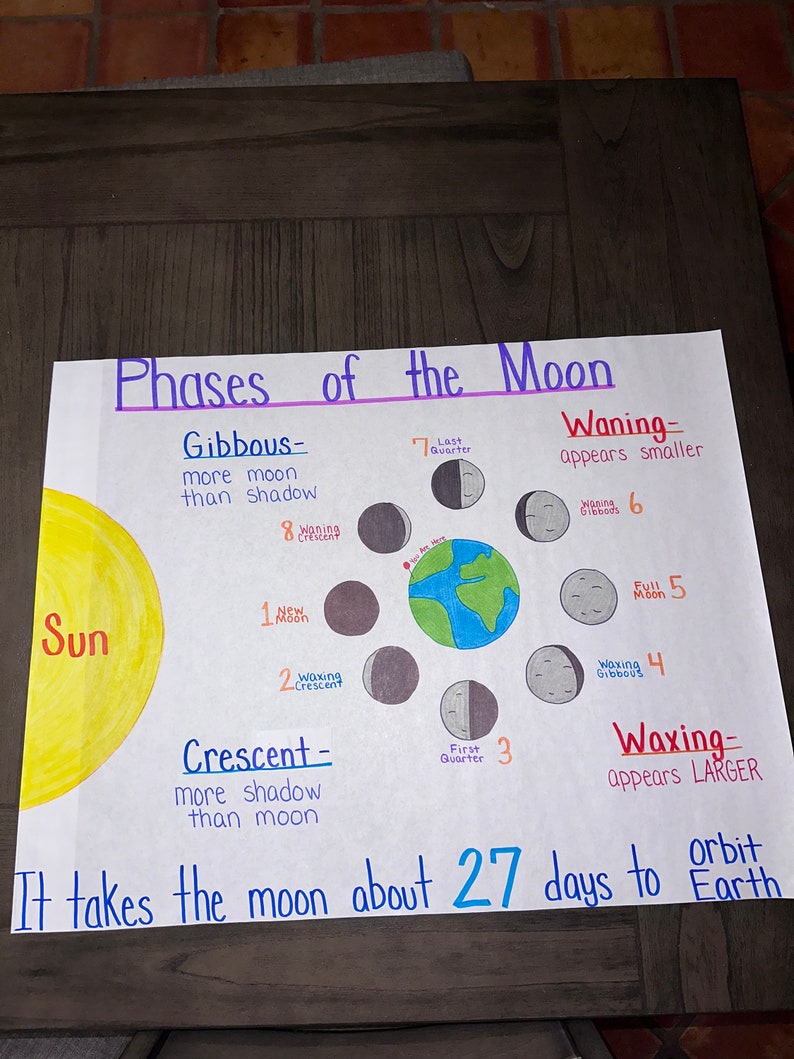 Phases of the Moon
Gibbous-
more moon
than shadow
Waning-
appears smaller
7 Last
Quarter
8 Waning
Crescent
Waning
Gibbous 6
You Are Here
1 New
Moon
Full
Moon 5
Sun
2 Waxing
Crescent
Waxing
Gibbous 4
First
Quarter 3
Crescent-
more shadow
than moon
Waxing-
appears LARGER
It takes the moon about 27 days to orbit
Earth